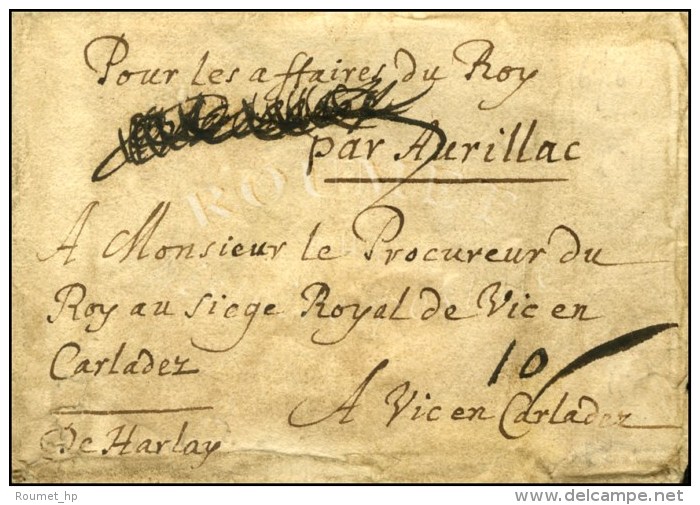 Pour les affaires du Roy
par Aurillac
ROUMET
A Monsieur le Procureur du
Roy au siege Royal de Vic en
Carladez
10
A Vic en Carladez
De Harlay
Roumet_hp
www.delcampe.net